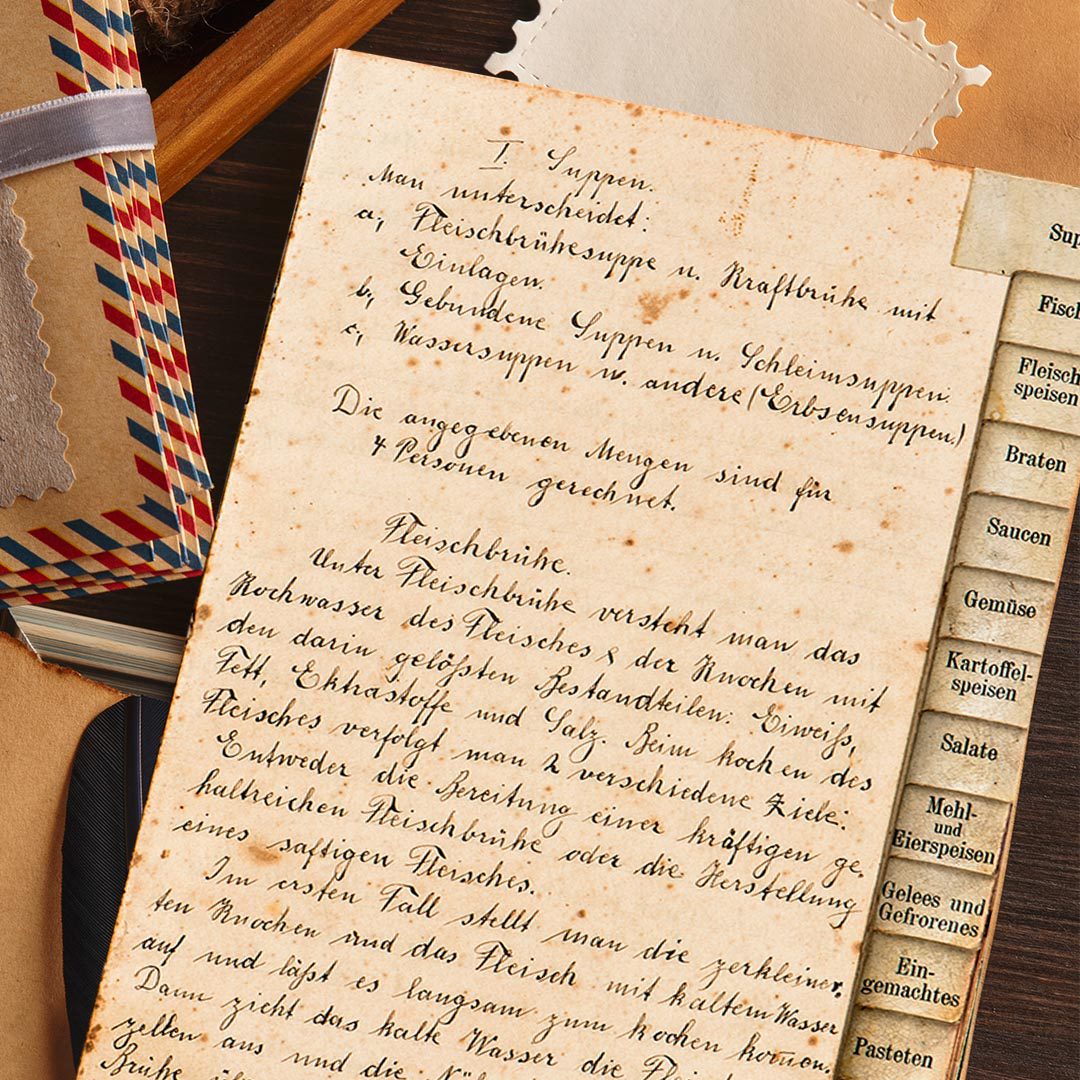 I. Suppen.
Man unterscheidet:
a., Fleischbrühesuppe u. Kraftbrühe mit
Einlagen.
b., Gebundene Suppen u. Schleimsuppen.
c., Wassersuppen u. andere (Erbsensuppen.)
Die angegebenen Mengen sind für
4 Personen gerechnet.
Fleischbrühe.
Unter Fleischbrühe versteht man das
Kochwasser des Fleisches & der Knochen mit
den darin gelößten Bestandteilen: Eiweiß,
Fett, Ekhrastoffe und Salz. Beim kochen des
Fleisches verfolgt man 2 verschiedene Ziele:
Entweder die Bereitung einer kräftigen ge-
haltreichen Fleischbrühe oder die Herstellung
eines saftigen Fleisches.
Im ersten Fall stellt man die zerkleiner-
ten Knochen und das Fleisch mit kaltem Wasser
auf und läßt es langsam zum kochen kommen.
Dann zieht das kalte Wasser die
zellen aus und die
Brühe
Fleisch-
speisen
Braten
Saucen
Gemüse
Kartoffel-
speisen
Salate
Mehl-
und
Eierspeisen
Gelees und
Gefrorenes
Ein-
gemachtes
Pasteten